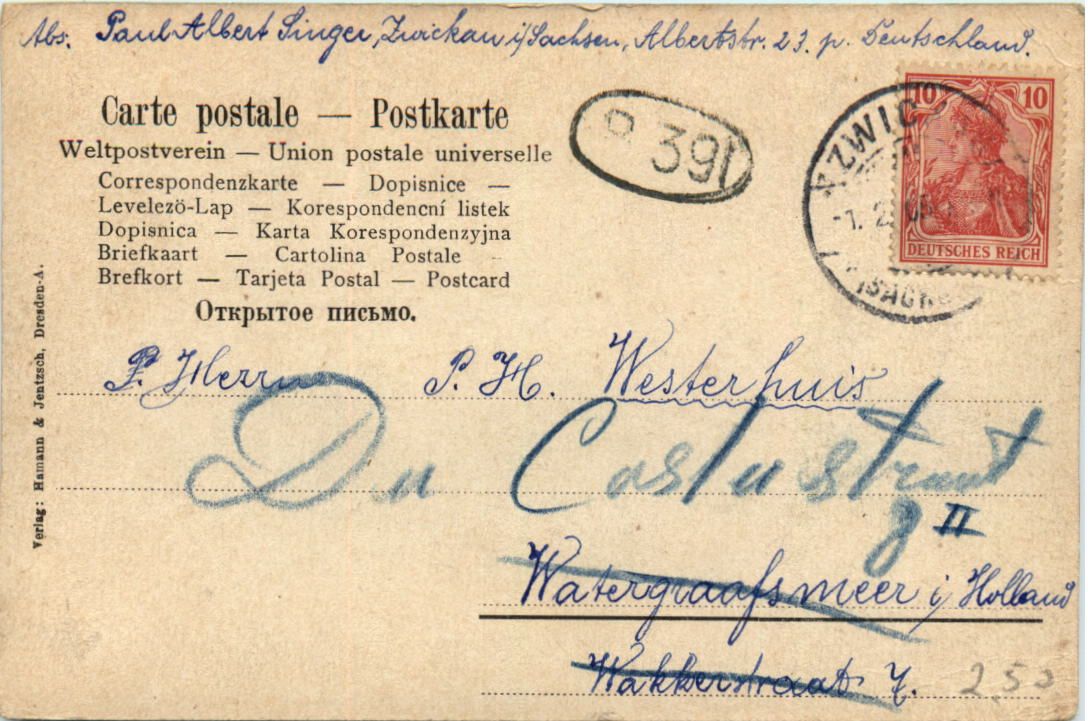 Abs. Paul Albert Singer, Zwickau i/Sachsen, Albertstr. 23. p. Deutschland.
Carte postale — Postkarte
Weltpostverein — Union postale universelle
Correspondenzkarte — Dopisnice —
Levelezö-Lap — Korespondencní listek
Dopisnica — Karta Korespondenzyjna
Briefkaart — Cartolina Postale
Brefkort — Tarjeta Postal — Postcard
Открытое письмо.
391
10 10
DEUTSCHES REICH
ZWIC
1. 2.
(SACHS
Verlag: Hamann & Jentzsch, Dresden-A.
Herrn P. H. Westerhuis
Da Costastraat
II
Watergraafsmeer i/Holland
Wakkerstraat 7.
2,50